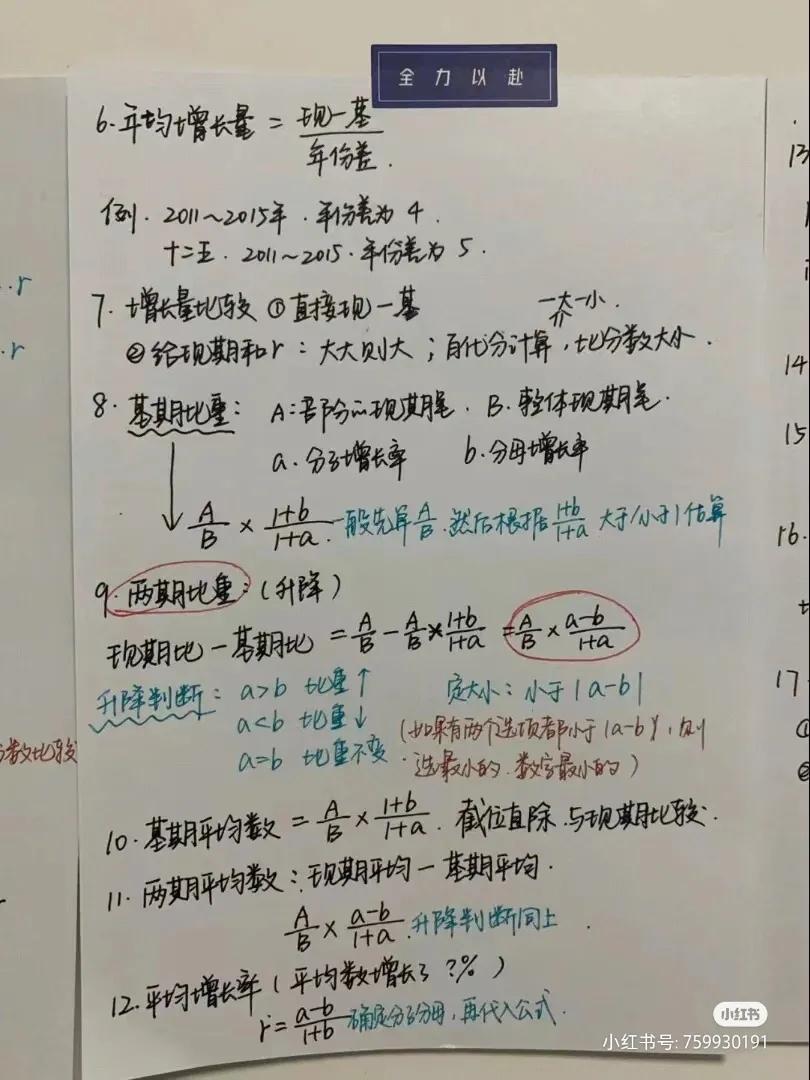 全力以赴
6.年均增长量 = 现-基/年份差.
例.2011~2015年.年份差为4.
十二五.2011~2015.年份差为5.
7.增长量比较 ①直接现-基
一大一小.
②给现期和r：大大则大；百化分计算,比分数大小.
8.基期比重: A:部分的现期尾. B.整体现期尾.
a.分子增长率 b.分母增长率
A/B × 1+b/1+a.一般先算A/B.然后根据1+b/1+a大于/小于1估算
9.两期比重:(升降)
现期比-基期比 = A/B - A/B * 1+b/1+a = A/B × a-b/1+a
升降判断: a>b 比重↑ 定大小: 小于|a-b|
a<b 比重↓ (如果有两个选项都小于|a-b|,则
a=b 比重不变 选最小的.数字最小的)
10.基期平均数 = A/B × 1+b/1+a. 截位直除.与现期比较.
11.两期平均数:现期平均-基期平均.
A/B × a-b/1+a.升降判断同上.
12.平均增长率(平均数增长了?%)
r=a-b/1+b 确定分子分母,再代入公式.
..r
.r
数比较
13
14
15
16.
17.
小红书
小红书号: 759930191